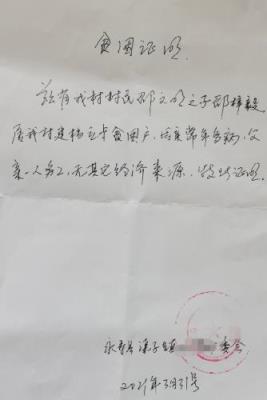 贫困证明
兹有我村村民邵文明之子邵梓毅
属我村建档立卡贫困户,母亲常年多病,父
亲一人务工,无其它经济来源,特此证明
永寿县渠子镇 委会
2021年3月31号